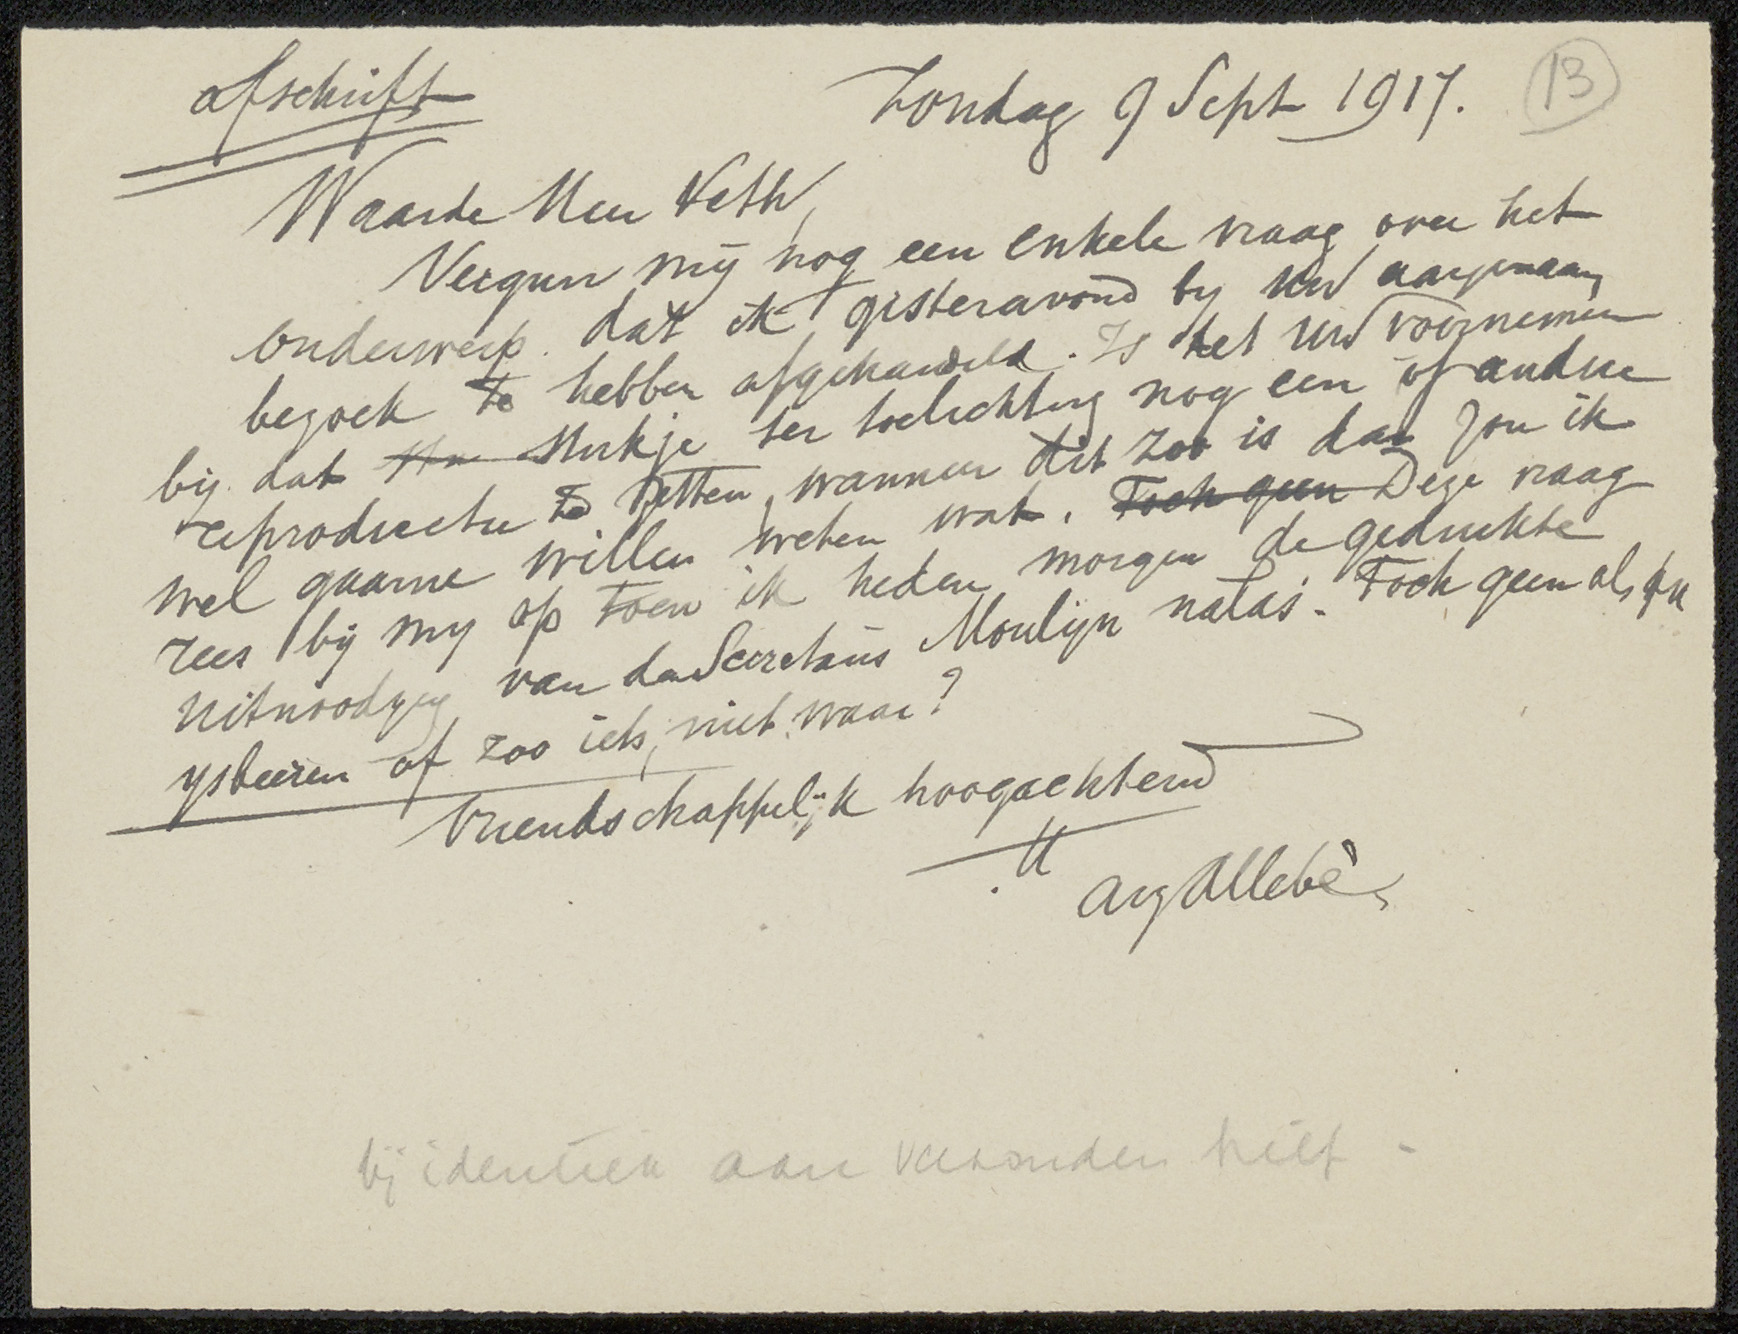 afschrift
Zondag 9 Sept 1917. 13
Waarde Heer Veth,
Vergun mij nog een enkele vraag over het
onderwerp. dat ik gisteravond by uw aangenaam
bezoek te hebben afgehandeld. Is het uw voornemen
bij dat stukje ter toelichting nog een of andere
reproductie te zetten, wanneer dit zoo is dan zou ik
wel gaarne willen weten wat. Toch geen Deze vraag
rees bij my op toen ik heden morgen de gedrukte
uitnoodging van den Secretaris Moulijn nalas. Toch geen
ysbeeren of zoo iets, niet waar?
Vriendschappelijk hoogachtend
Aug Allebé,
bij identiek aan verzonden brief -